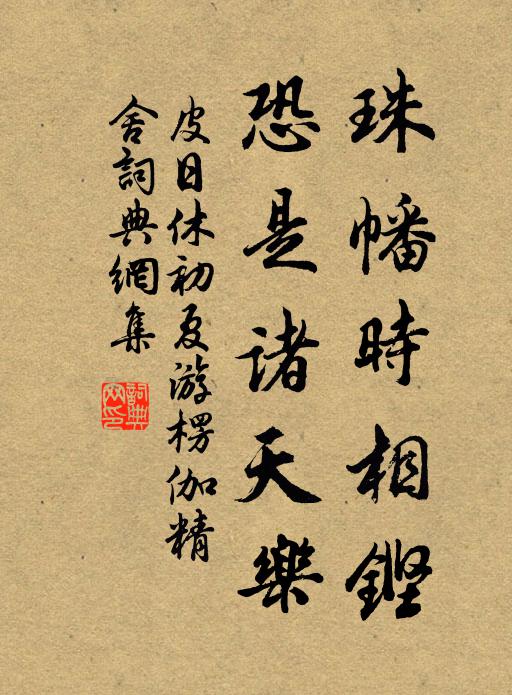 珠幡時相鏗
恐是諸天樂
皮日休初夏游楞伽精
舍詞典網集
詞典
网印